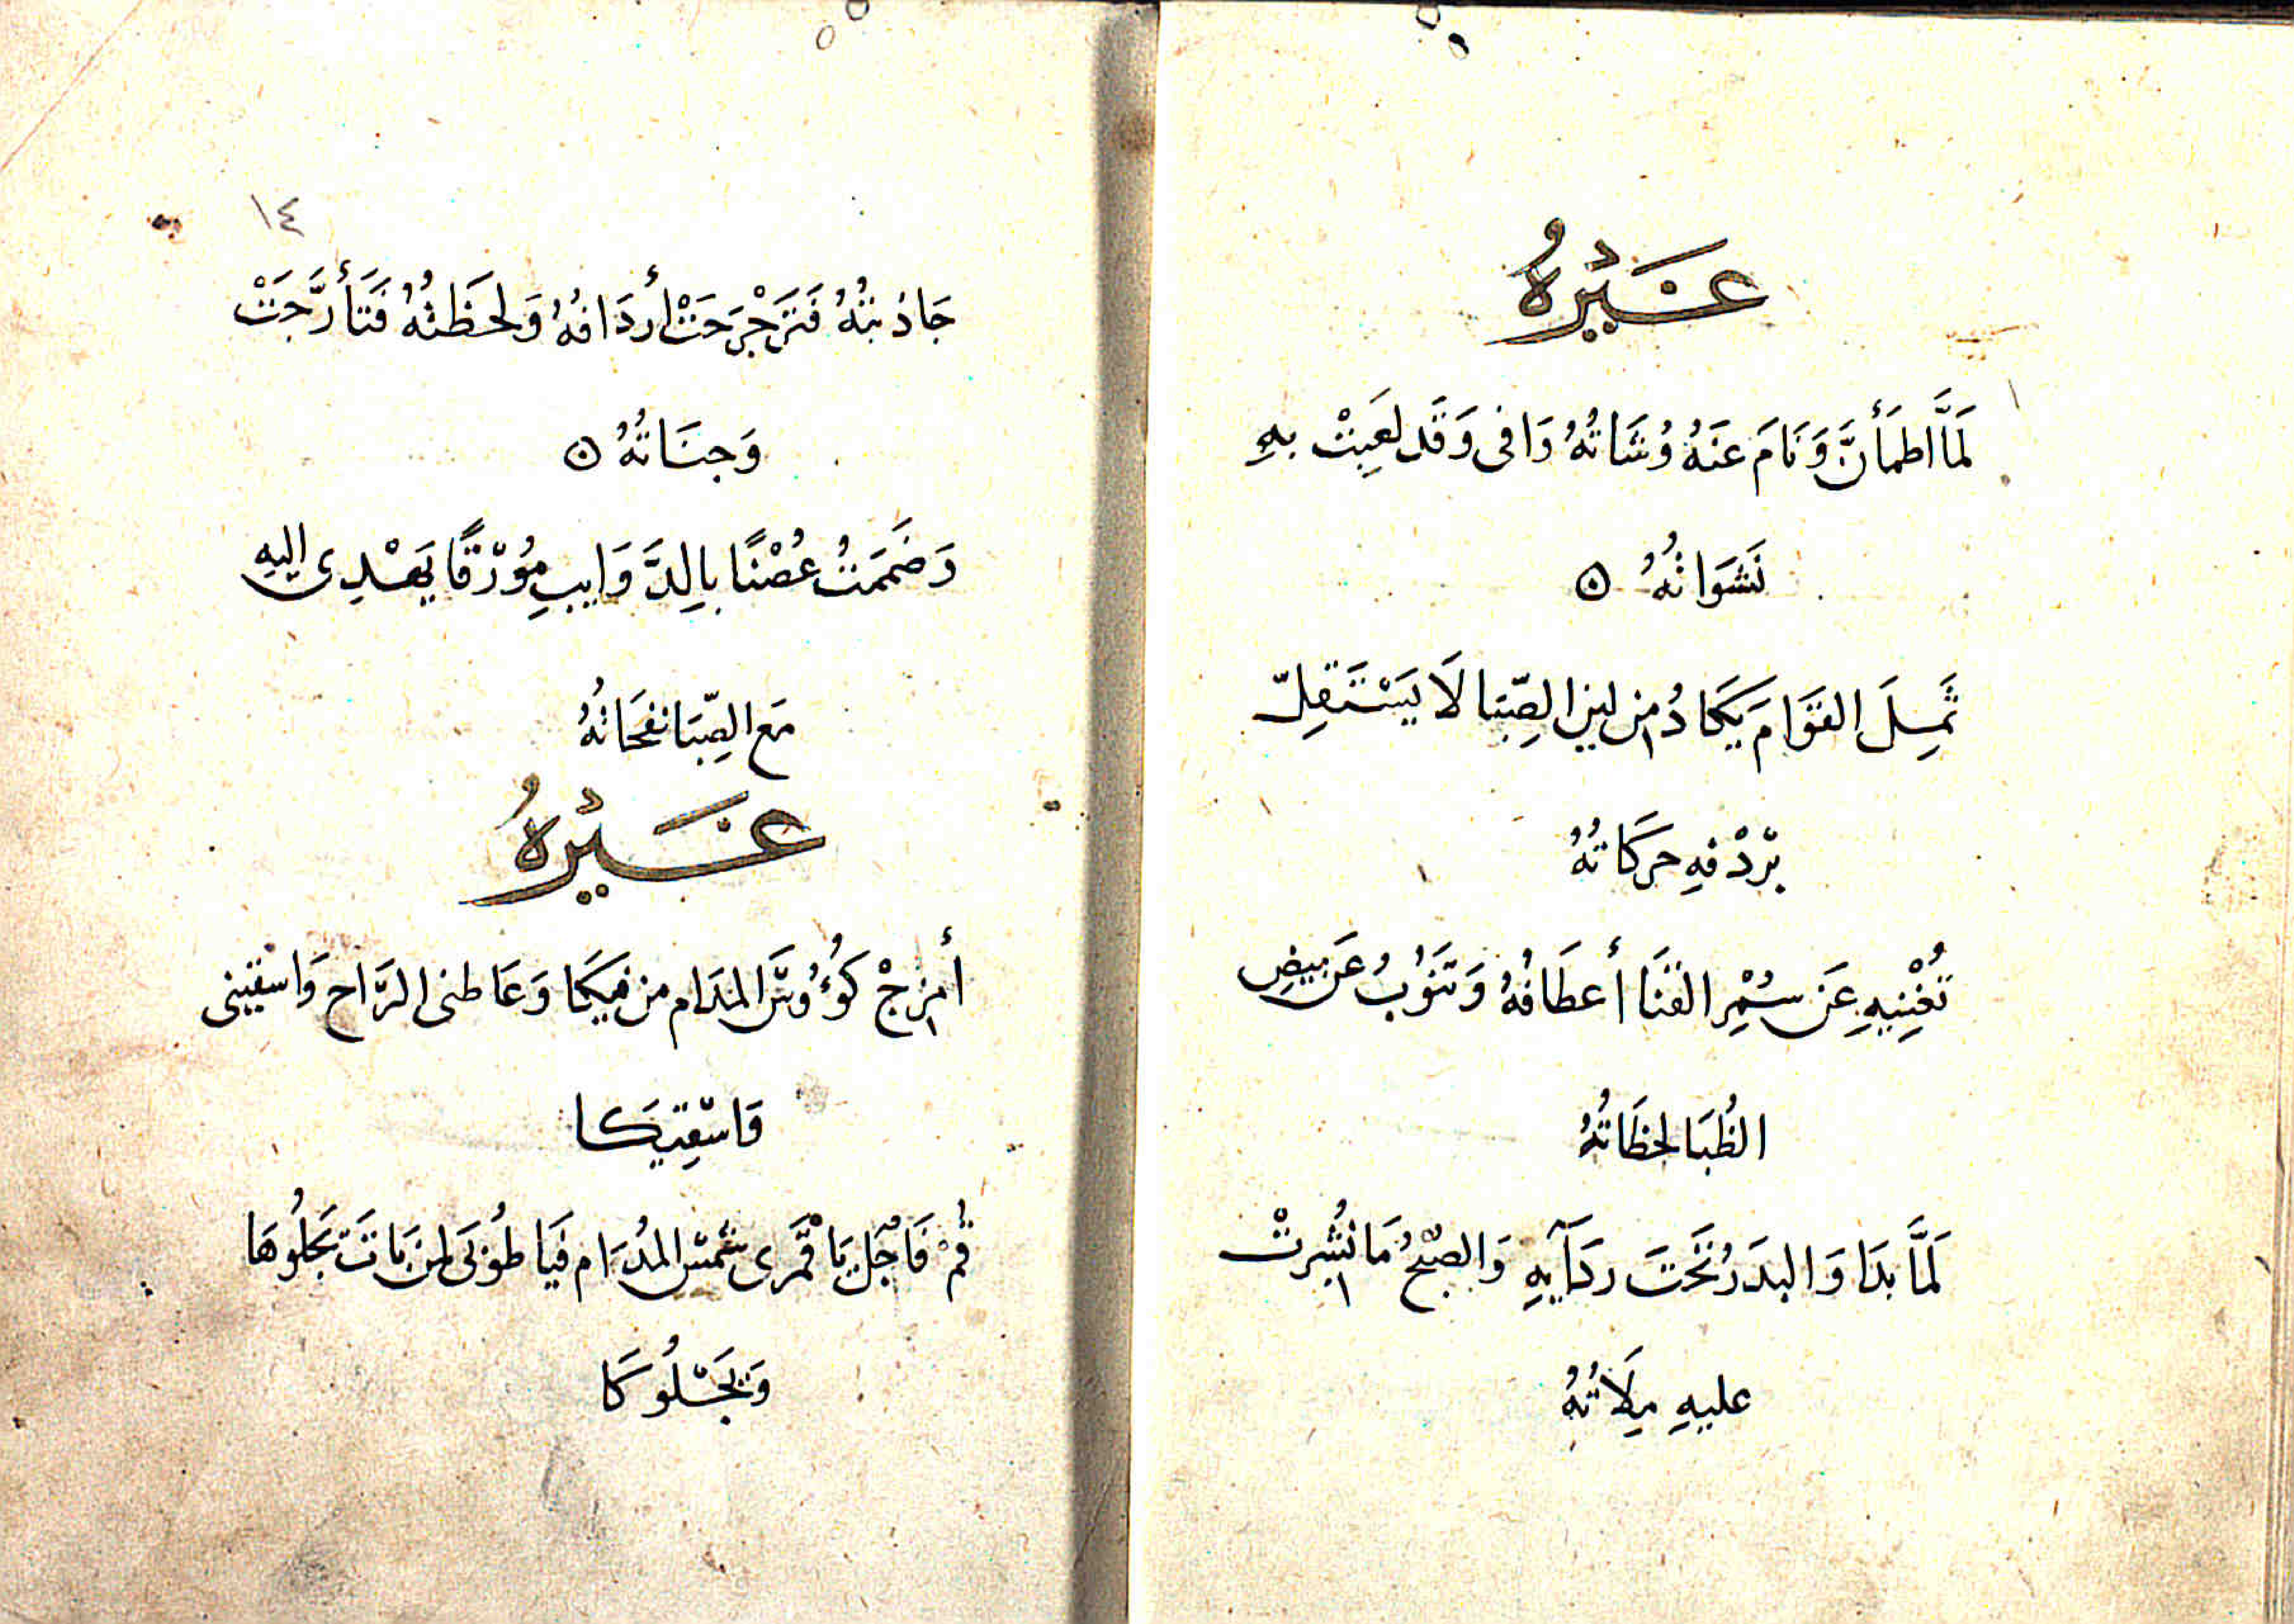 غَيْرُهُ
لَمَّا اطمَأَنَّ وَنَامَ عَنهُ وُشَاتُهُ وَافى وَقَد لعِبَتْ بهِ
نَشَوَاتُهُ
ثَمِلَ القَوَامَ يَكَادُ من لينِ الصِّبَا لَا يَسْتَقِلّ
بْردْفهِ حركَاتهُ
تُغْنِيهِ عَن سُمْرِ القَنَا أعطَافُهُ وَتَنُوبُ عَن بيضِ
الظُبَا لحظَاتُهُ
لَمَّا بدَا وَالبدَرُ تَحَتَ ردَآيهِ وَالصبْحُ مَا نُشِرتْ
عليهِ مِلَاتُهُ
١٤
جَاذبتُهُ فَتَرَجْرَجَتْ أردَافُهُ وَلحَظتُهُ فَتَأرَّجَتْ
وَجنَاتُهُ
وَضَممَتُ غُصْنًا بالِدَّوَايبِ مُوْرقًا يَهْدِى اليهِ
مَع الصِّبَا نفحَاتُهُ
غَيْرُهُ
أمزجْ كُوءُوسَ المدَام من فيكَا وَعَاطنى الرَّاح وَاسْقينى
وَاسْقِيَكا
قُمْ فَاجْلُ يَا قْمَرى شَمسَ المُدَام فَيَا طُوْبَى لمن بَاتَ يَجلُوهَا
وَيَجْلُوكَا